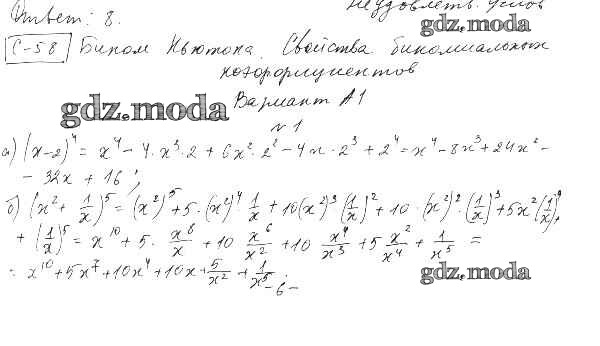 Ответ: 8.
неудовлетв. услов
gdz.moda
С-58 Бином Ньютона. Свойства биномиальных
коэффициентов
gdz.moda
Вариант А1
№1
а) (x-2)⁴ = x⁴ - 4·x³·2 + 6x²·2² - 4x·2³ + 2⁴ = x⁴ - 8x³ + 24x² -
- 32x + 16;
б) (x² + 1/x)⁵ = (x²)⁵ + 5·(x²)⁴ 1/x + 10(x²)³(1/x)² + 10·(x²)²·(1/x)³ + 5x²(1/x)⁴
+ (1/x)⁵ = x¹⁰ + 5· x⁸/x + 10 x⁶/x² + 10 x⁴/x³ + 5 x²/x⁴ + 1/x⁵ =
= x¹⁰ + 5x⁷ + 10x⁴ + 10x + 5/x² + 1/x⁵;
-6-
gdz.moda